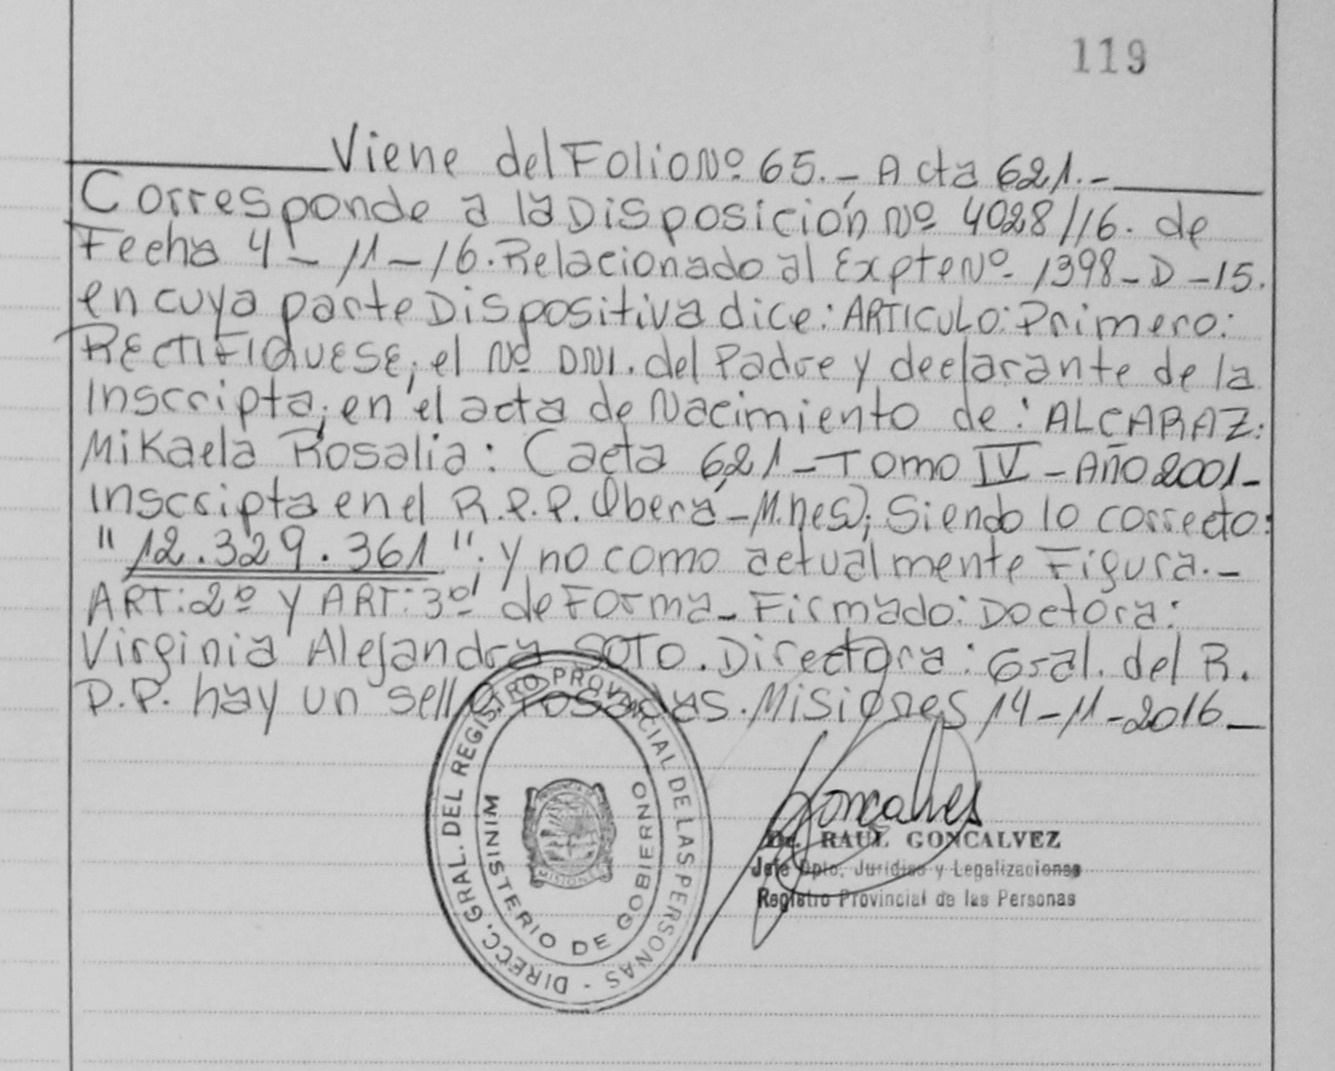 119
Viene del Folio Nº 65.- Acta 621.-
Corresponde a la Disposición Nº 4028/16. de
Fecha 4-11-16. Relacionado al Expte Nº 1398-D-15.
en cuya parte Dispositiva dice: ARTICULO: Primero:
RECTIFIQUESE, el Nº DNI. del Padre y declarante de la
Inscripta, en el acta de Nacimiento de: ALCARAZ:
Mikaela Rosalia: (acta 621-Tomo IV-Año 2001-
Inscripta en el R.P.P. Oberá-M.nes); Siendo lo correcto:
"12.329.361", y no como actualmente Figura.-
ART:2º y ART:3º de Forma- Firmado: Doctora:
Virginia Alejandra SOTO. Directora: Gral. del R.
P.P. hay un sello Posadas. Misiones 14-11-2016-
DIRECC. GRAL. DEL REGISTRO PROVINCIAL DE LAS PERSONAS -
MINISTERIO DE GOBIERNO
MISIONES
Goncalves
Dr. RAUL GONCALVEZ
Jefe Dpto. Jurídico y Legalizaciones
Registro Provincial de las Personas